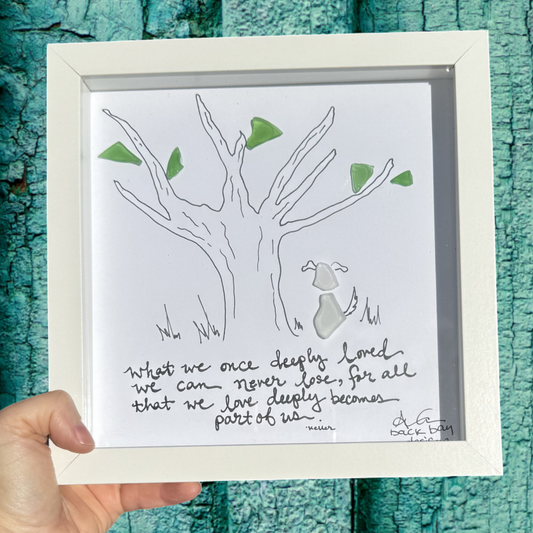 what we once deeply loved
we can never lose, for all
that we love deeply becomes
part of us.
back bay